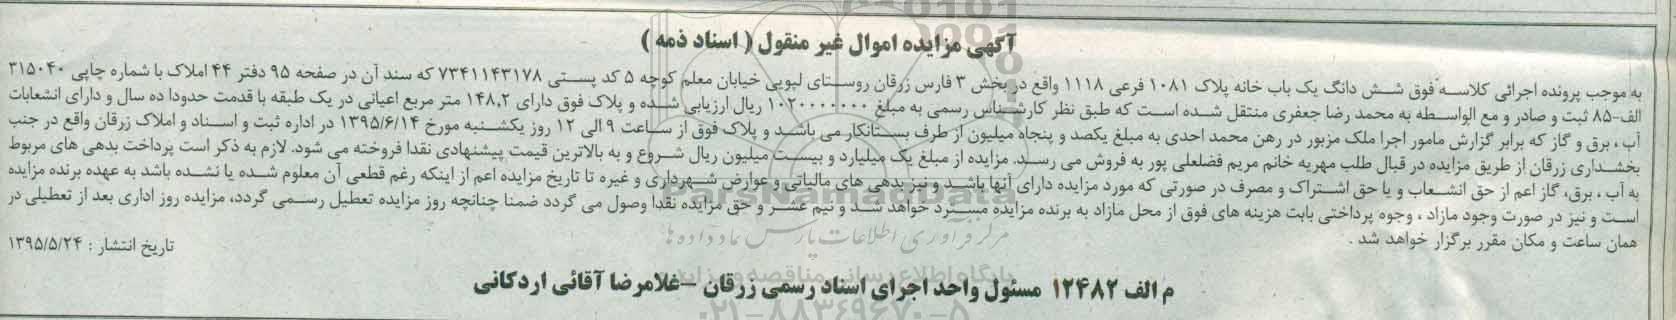 آگهی مزایده اموال غیر منقول ( اسناد ذمه )
به موجب پرونده اجرائی کلاسه فوق شش دانگ یک باب خانه پلاک ۱۰۸۱ فرعی ۱۱۱۸ واقع در بخش ۳ فارس زرقان روستای لپویی خیابان معلم کوچه ۵ کد پستی ۷۳۴۱۱۴۳۱۷۸ که سند آن در صفحه ۹۵ دفتر ۴۴ املاک با شماره چاپی ۳۱۵۰۴۰
الف-۸۵ ثبت و صادر و مع الواسطه به محمد رضا جعفری منتقل شده است که طبق نظر کارشناس رسمی به مبلغ ۱۰۲۰۰۰۰۰۰۰ ریال ارزیابی شده و پلاک فوق دارای ۱۴۸,۲ متر مربع اعیانی در یک طبقه با قدمت حدودا ده سال و دارای انشعابات
آب ، برق و گاز که برابر گزارش مامور اجرا ملک مزبور در رهن محمد احدی به مبلغ یکصد و پنجاه میلیون از طرف بستانکار می باشد و پلاک فوق از ساعت ۹ الی ۱۲ روز یکشنبه مورخ ۱۳۹۵/۶/۱۴ در اداره ثبت و اسناد و املاک زرقان واقع در جنب
بخشداری زرقان از طریق مزایده در قبال طلب مهریه خانم مریم فضلعلی پور به فروش می رسد. مزایده از مبلغ یک میلیارد و بیست میلیون ریال شروع و به بالاترین قیمت پیشنهادی نقدا فروخته می شود. لازم به ذکر است پرداخت بدهی های مربوط
به آب ، برق، گاز اعم از حق انشعاب و یا حق اشتراک و مصرف در صورتی که مورد مزایده دارای آنها باشد و نیز بدهی های مالیاتی و عوارض شهرداری و غیره تا تاریخ مزایده اعم از اینکه رغم قطعی آن معلوم شده یا نشده باشد به عهده برنده مزایده
است و نیز در صورت وجود مازاد ، وجوه پرداختی بابت هزینه های فوق از محل مازاد به برنده مزایده مسترد خواهد شد و نیم عشر و حق مزایده نقدا وصول می گردد ضمنا چنانچه روز مزایده تعطیل رسمی گردد، مزایده روز اداری بعد از تعطیلی در
همان ساعت و مکان مقرر برگزار خواهد شد .
تاریخ انتشار : ۱۳۹۵/۵/۲۴
م الف ۱۲۴۸۲ مسئول واحد اجرای اسناد رسمی زرقان –غلامرضا آقائی اردکانی
ParsNamadData
مرکز فرآوری اطلاعات پارس نماد داده ها
پایگاه اطلاع رسانی مناقصه و مزایده
۰۲۱-۸۸۳۴۹۶۷۰-۵